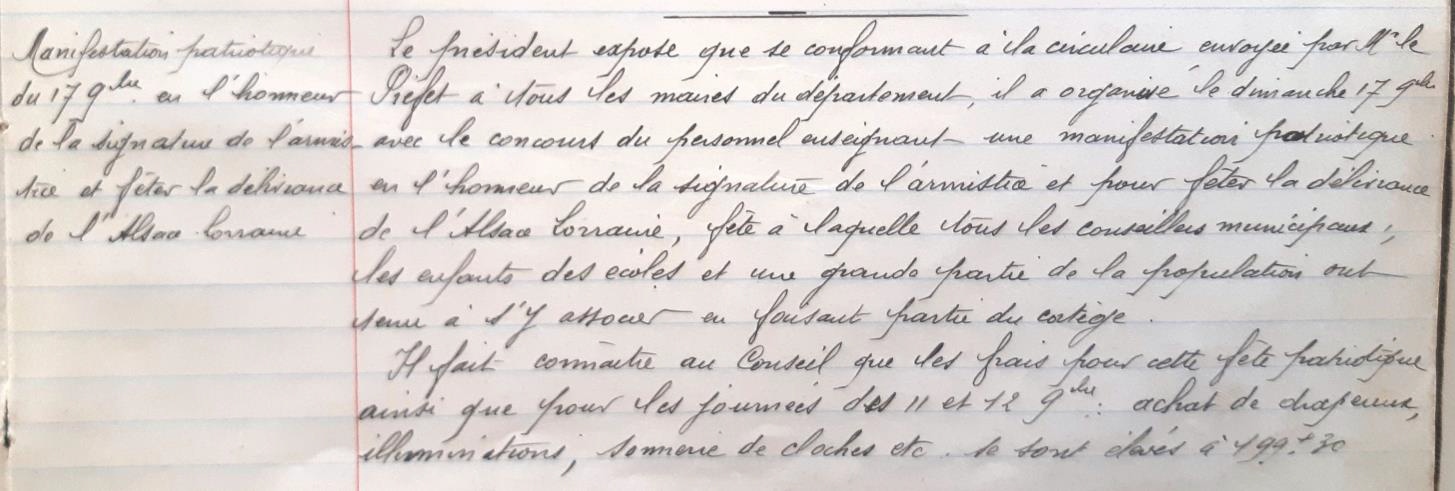 Manifestation patriotique
du 17 9bre en l'honneur
de la signature de l'armis-
tice et fêter la délivrance
de l'Alsace Lorraine
Le président expose que se conformant à la circulaire envoyée par Mr le
Préfet à tous les maires du département, il a organisé le dimanche 17 9bre
avec le concours du personnel enseignant une manifestation patriotique
en l'honneur de la signature de l'armistice et pour fêter la délivrance
de l'Alsace Lorraine, fête à laquelle tous les conseillers municipaux,
les enfants des écoles et une grande partie de la population ont
tenu à s'y associer en faisant partie du cortège.
Il fait connaître au Conseil que les frais pour cette fête patriotique
ainsi que pour les journées des 11 et 12 9bre : achat de drapeaux,
illuminations, sonnerie de cloches etc. se sont élevés à 199f30